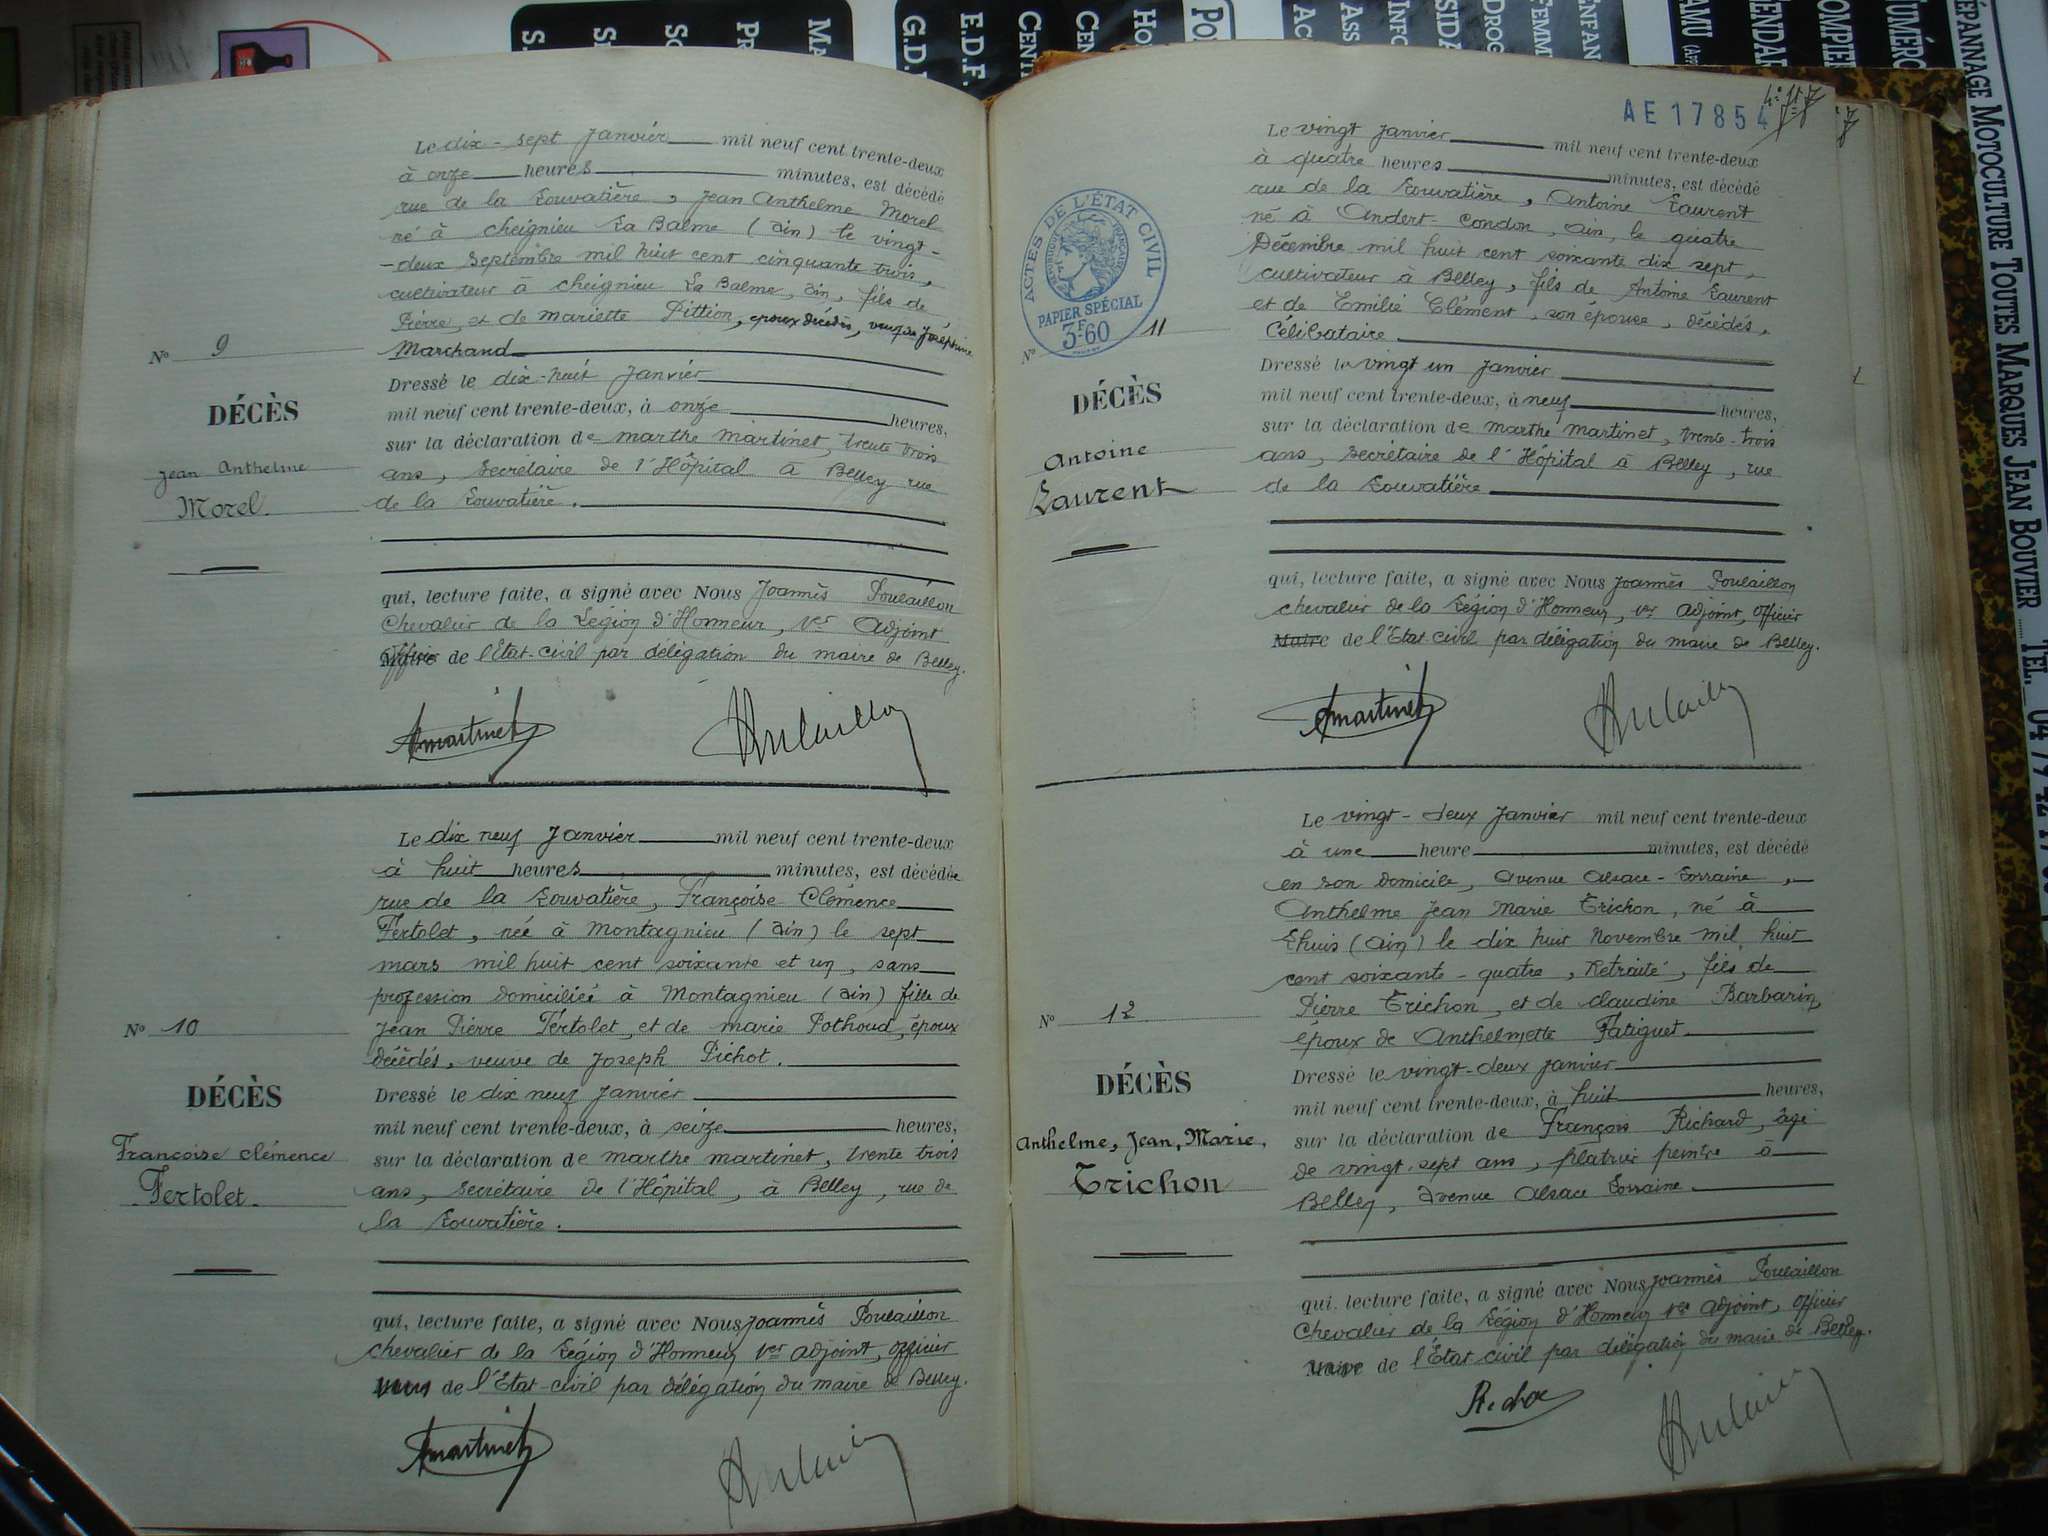 Le dix-sept Janvier mil neuf cent trente-deux
à onze heures minutes, est décédé
rue de la Louvatière, Jean Anthelme Morel
né à Cheignieu La Balme (Ain) le vingt-
-deux Septembre mil huit cent cinquante trois,
cultivateur à Cheignieu La Balme, Ain, fils de
Pierre, et de Mariette Pittion, époux décédés, veuf de Joséphine
Marchand
Nº 9
DÉCÈS
Jean Anthelme
Morel.
Dressé le dix-huit Janvier
mil neuf cent trente-deux, à onze heures,
sur la déclaration de Marthe Martinet, trente trois
ans, Secrétaire de l'Hôpital à Belley rue
de la Louvatière.
qui, lecture faite, a signé avec Nous Joannès Poulaillon
Chevalier de la Légion d'Honneur, 1er Adjoint
Officier de l'Etat-civil par délégation du maire de Belley.
Martinet
Poulaillon
Le dix neuf Janvier mil neuf cent trente-deux
à huit heures minutes, est décédée
rue de la Louvatière, Françoise Clémence
Fertolet, née à Montagnieu (Ain) le sept
mars mil huit cent soixante et un, sans
profession domiciliée à Montagnieu (Ain) fille de
Jean Pierre Fertolet, et de Marie Pothoud, époux
décédés, veuve de Joseph Pichot.
Nº 10
DÉCÈS
Françoise Clémence
Fertolet.
Dressé le dix neuf Janvier
mil neuf cent trente-deux, à seize heures,
sur la déclaration de Marthe Martinet, trente trois
ans, Secrétaire de l'Hôpital, à Belley, rue de
la Louvatière.
qui, lecture faite, a signé avec Nous Joannès Poulaillon
Chevalier de la Légion d'Honneur 1er Adjoint, Officier
de l'Etat-civil par délégation du maire de Belley.
Martinet
AE 17854
Le vingt Janvier mil neuf cent trente-deux
à quatre heures minutes, est décédé
rue de la Louvatière, Antoine Laurent
né à Andert-Condon, Ain, le quatre
Décembre mil huit cent soixante dix sept,
cultivateur à Belley, fils de Antoine Laurent
et de Emilie Clément, son épouse, décédés,
Célibataire
ACTES DE L'ÉTAT CIVIL
RÉPUBLIQUE FRANÇAISE
PAPIER SPÉCIAL
3F60
Nº 11
DÉCÈS
Antoine
Laurent
Dressé le vingt un Janvier
mil neuf cent trente-deux, à neuf heures,
sur la déclaration de Marthe Martinet, trente-trois
ans, Secrétaire de l'Hôpital à Belley, rue
de la Louvatière
qui, lecture faite, a signé avec Nous Joannès Poulaillon
Chevalier de la Légion d'Honneur, 1er Adjoint, Officier
Maire de l'Etat civil par délégation du maire de Belley.
Martinet
Le vingt-deux Janvier mil neuf cent trente-deux
à une heure minutes, est décédé
en son domicile, avenue Alsace-Lorraine,
Anthelme Jean Marie Trichon, né à
Lhuis (Ain) le dix huit Novembre mil huit
cent soixante-quatre, Retraité, fils de
Pierre Trichon, et de Claudine Barbarin,
époux de Anthelmette Fatiguet
Nº 12
DÉCÈS
Anthelme, Jean, Marie,
Trichon
Dressé le vingt-deux Janvier
mil neuf cent trente-deux, à huit heures,
sur la déclaration de François Richard, âgé
de vingt-sept ans, plâtrier peintre à
Belley, Avenue Alsace Lorraine.
qui, lecture faite, a signé avec Nous Joannès Poulaillon
Chevalier de la Légion d'Honneur 1er Adjoint, Officier
Maire de l'Etat civil par délégation du maire de Belley.
ÉPANNAGE MOTOCULTURE TOUTES MARQUES JEAN BOUVIER
G.D.
E.D.F.